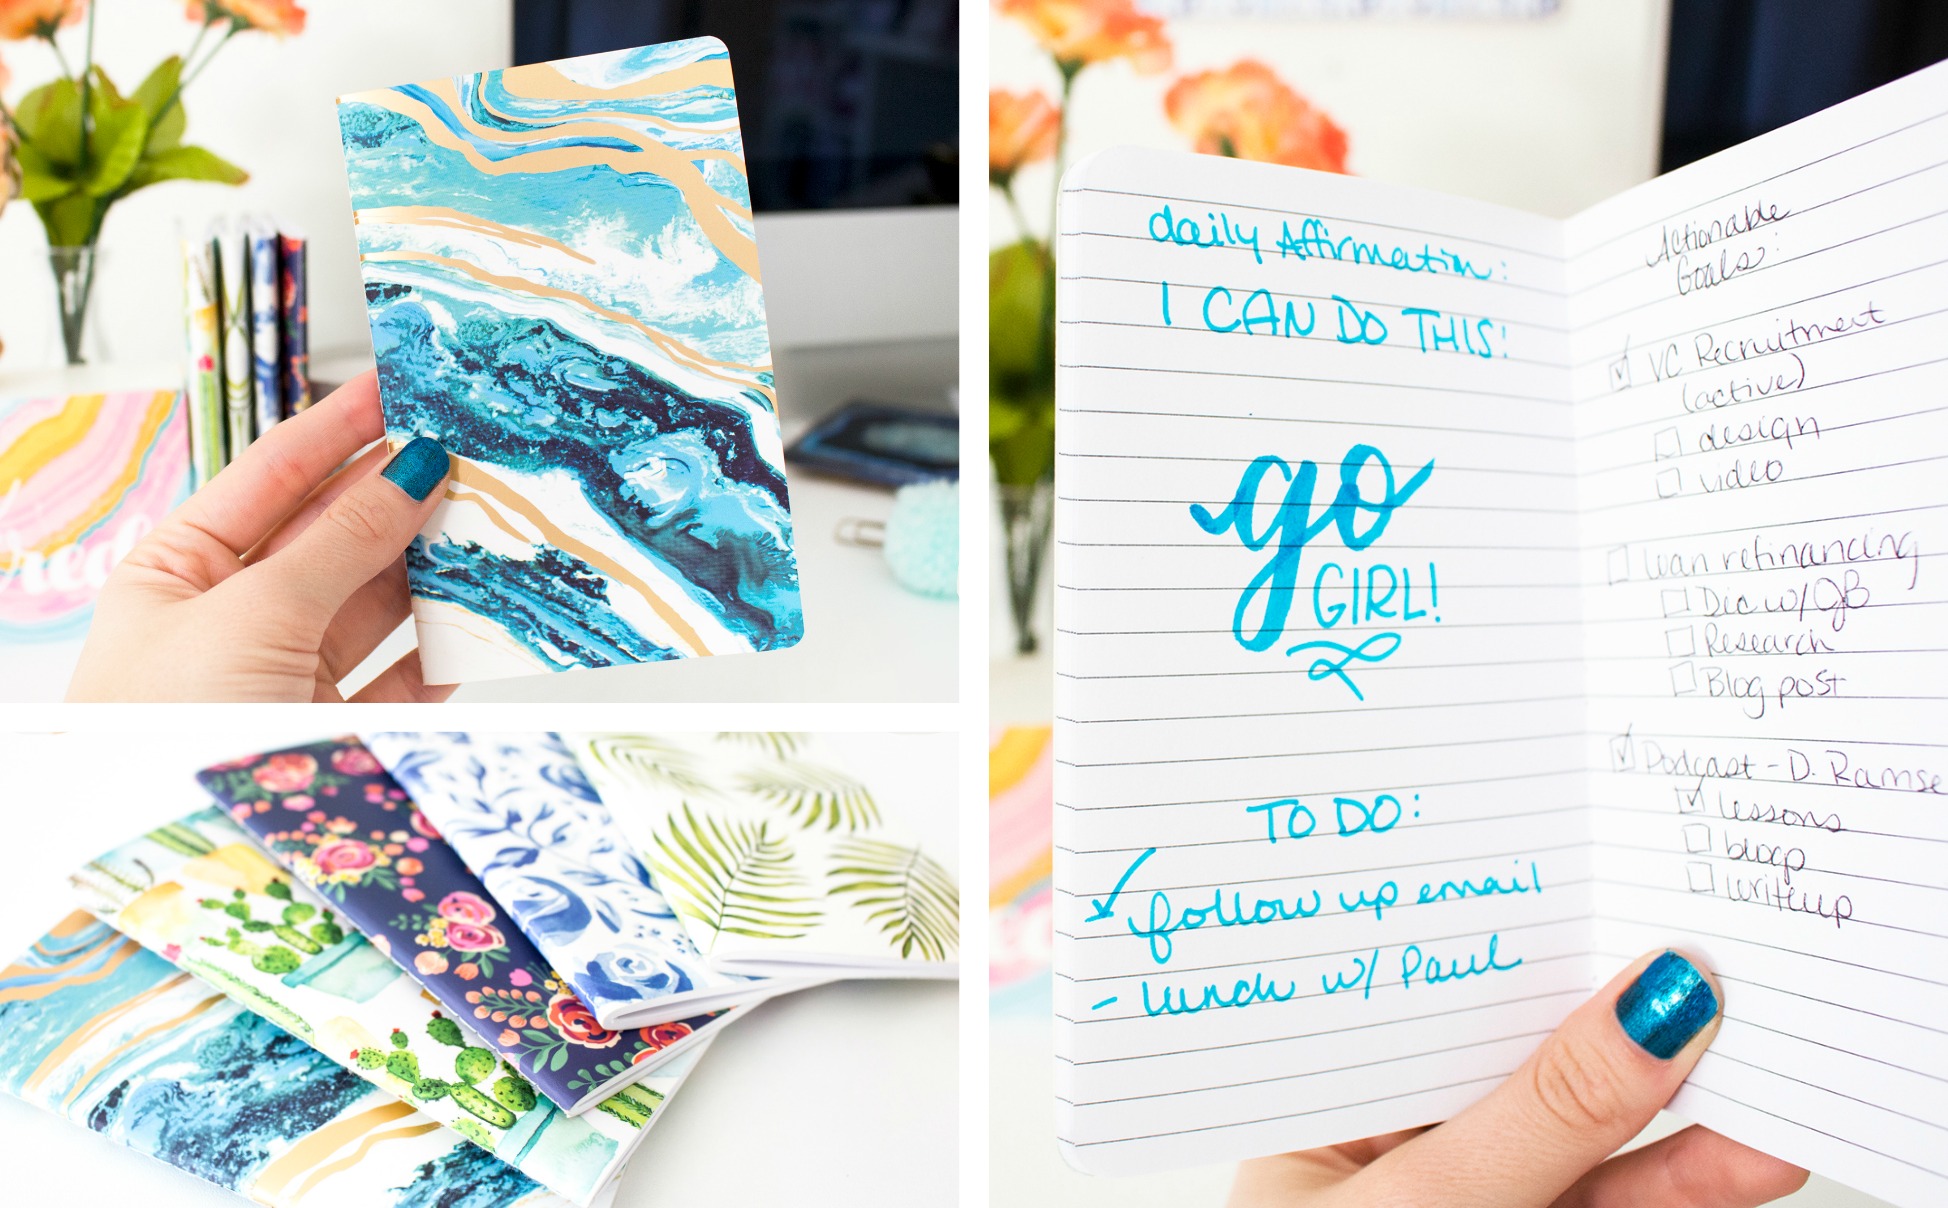 daily Affirmation:
I CAN DO THIS!
go
GIRL!
TO DO:
follow up email
- lunch w/ Paul
Actionable
Goals:
VC Recruitment
(active)
design
video
loan refinancing
Disc w/
Research
Blog post
Podcast - D. Ramse
lessons
blog
writeup
red